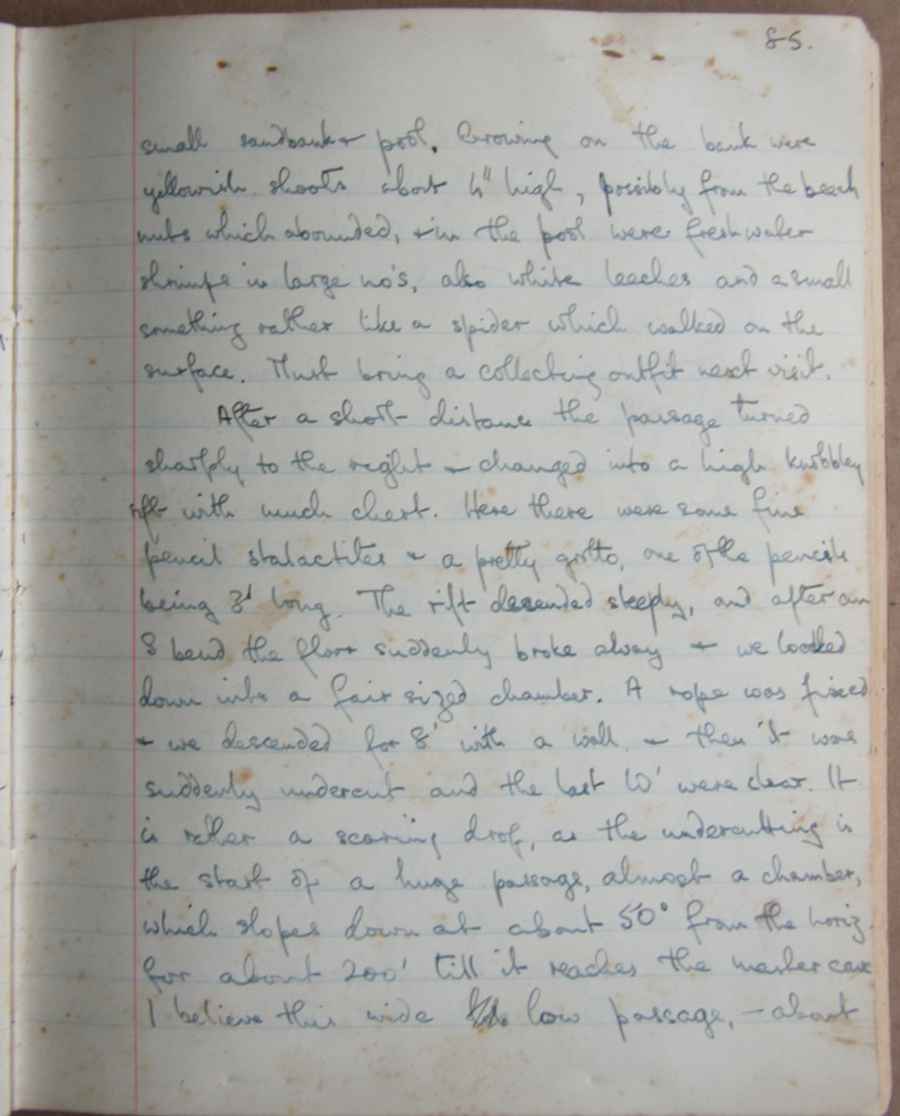 85.
small sandbank & pool. Growing on the bank were
yellowish shoots about 4" high, possibly from the beech
nuts which abounded, & in the pool were freshwater
shrimps in large no's, also white leeches and a small
something rather like a spider which walked on the
surface. Must bring a collecting outfit next visit.
After a short distance the passage turned
sharply to the right & changed into a high knobbley
rift with much chert. Here there were some fine
pencil stalactites & a pretty grotto, one of the pencils
being 3' long. The rift descended steeply, and after an
S bend the floor suddenly broke away & we looked
down into a fair sized chamber. A rope was fixed
& we descended for 8' with a wall & then it was
suddenly undercut and the last 10' were clear. It
is rather a scaring drop, as the undercutting is
the start of a huge passage, almost a chamber,
which slopes down at about 50° from the horiz.
for about 200' till it reaches the master cave
I believe this wide low passage, – about